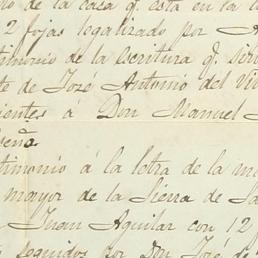 de la casa q. está en la
2 fojas legalizado por
de la escritura q.
te de José Antonio del
á Don Manuel
á la letra de la
mayor de la Sierra de
Juan Aguilar con 12
seguidos por Don José de